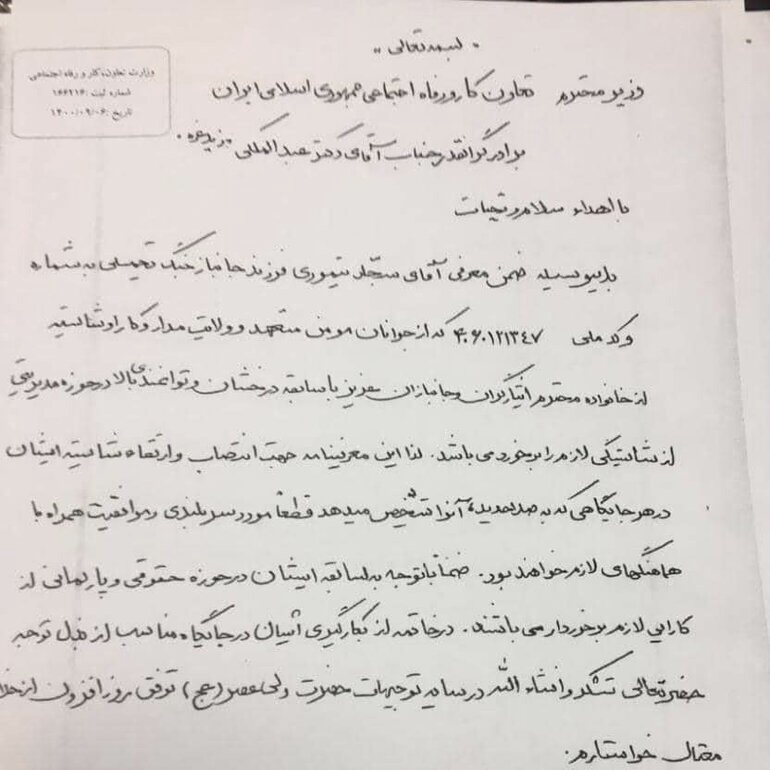 بسمه تعالی
وزارت تعاون، کار و رفاه اجتماعی
شماره ثبت: ۱۶۶۲۱۶
تاریخ: ۱۴۰۰/۰۹/۰۶
وزیر محترم تعاون کار و رفاه اجتماعی جمهوری اسلامی ایران
برادر گرانقدر جناب آقای دکتر عبدالملکی
با اهداء سلام و تحیات
بدینوسیله ضمن معرفی آقای سجاد تیموری فرزند جانباز جنگ تحمیلی به شماره
و کد ملی ۴۰۶۰۱۲۱۳۴۷ که از جوانان مومن متعهد و ولایت مدار و کارا و شایسته
از خانواده محترم ایثارگران و جانبازان عزیز با سابقه درخشان و توانمندی بالا در حوزه مدیریتی
از شایستگی لازم را برخوردمی باشد. لذا این معرفینامه جهت انتصاب و ارتقاء شایسته ایشان
در هر جایگاهی که به صلاحدید، آنرا تشخیص میدهد قطعاً مورد سربلندی و موافقیت همراه با
هماهنگیهای لازم خواهند بود. ضمناً باتوجه به سابقه ایشان در حوزه حقوقی و پارلمانی از
کارایی لازم برخوردار می باشند. در خاتمه از بکارگیری ایشان در جایگاه مناسب از قبل توجه
حضرتعالی تشکر و انشاء الله در سایه توجیهات حضرت ولی عصر (عج) توفیق روز افزون از
متعال خواستارم.